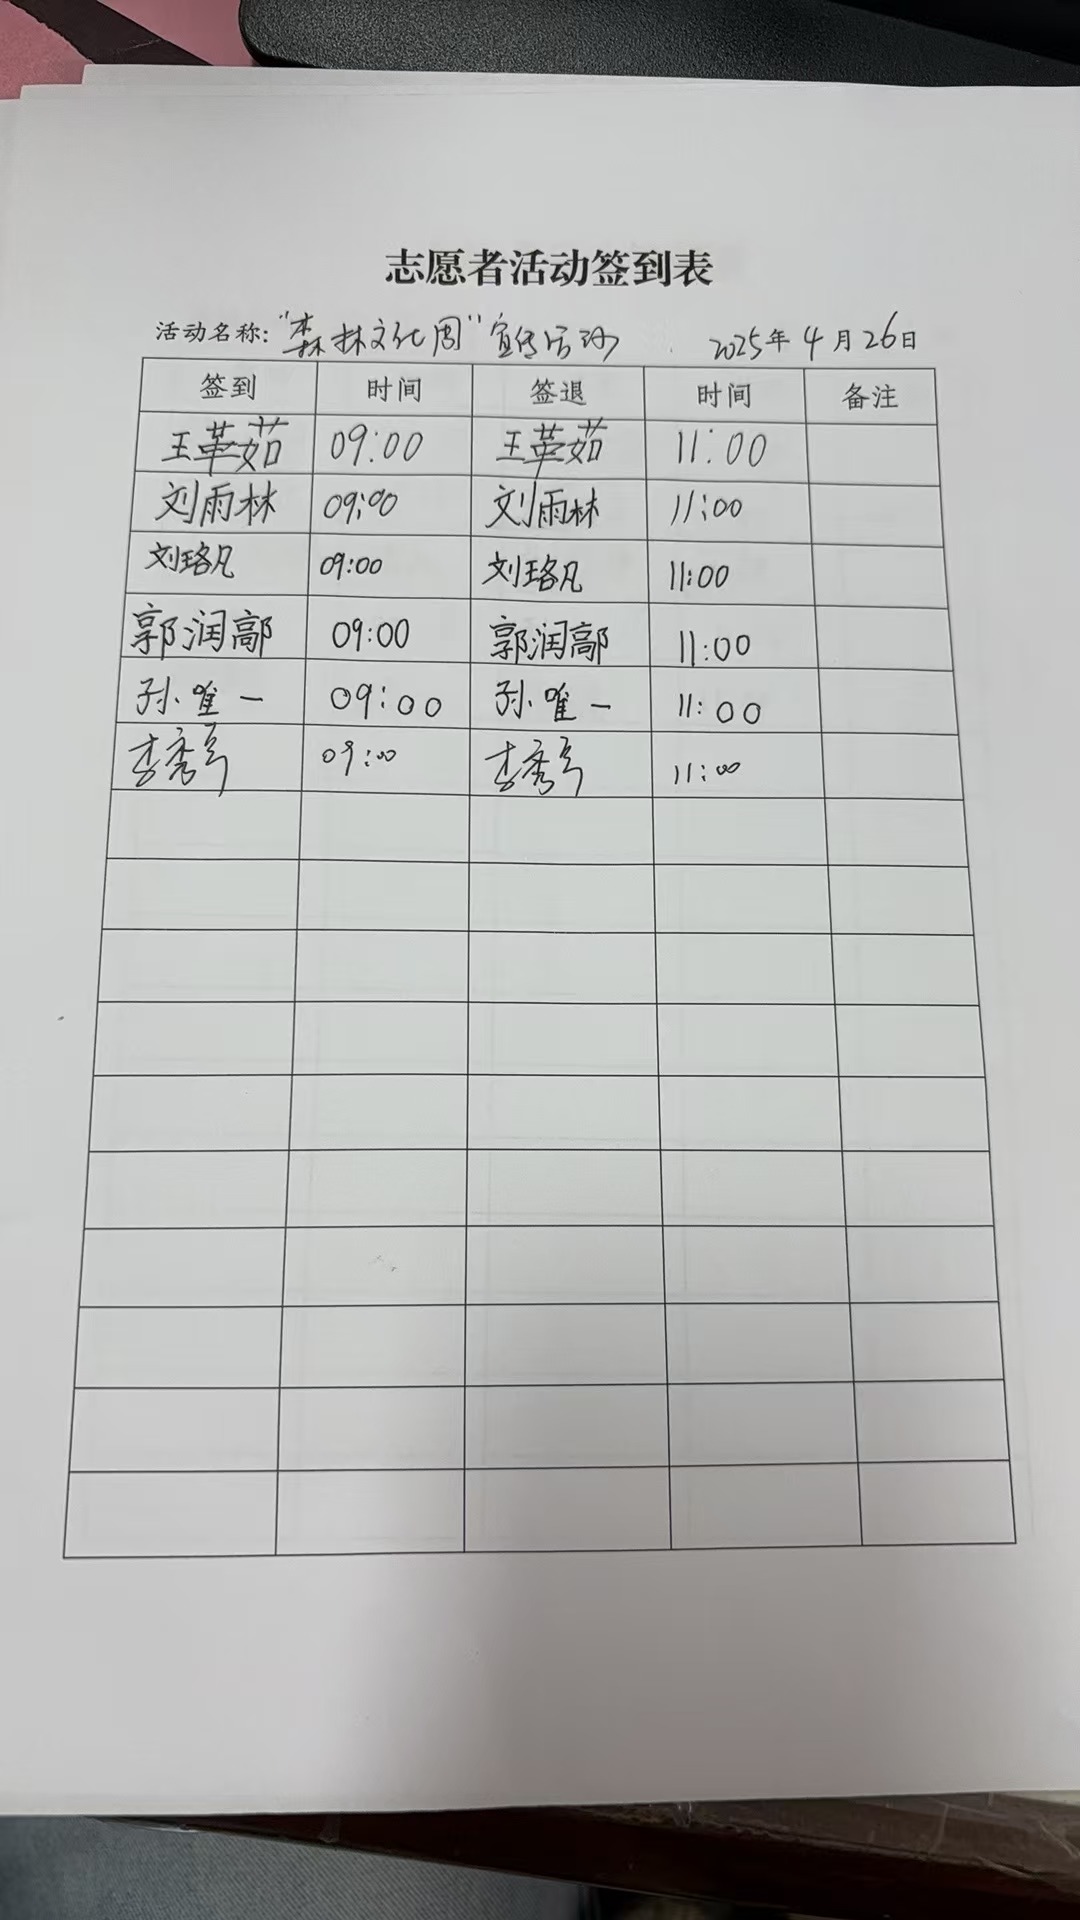 志愿者活动签到表
活动名称：“森林文化周”宣传活动 2025年4月26日
签到 时间 签退 时间 备注
王革茹 09:00 王革茹 11:00
刘雨林 09:00 刘雨林 11:00
刘珞凡 09:00 刘珞凡 11:00
郭润鄗 09:00 郭润鄗 11:00
孙唯一 09:00 孙唯一 11:00
李秀 09:00 李秀 11:00